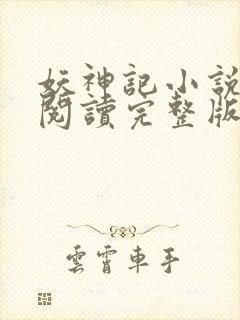 妖神記小說
閱讀完整版
雲霄車手